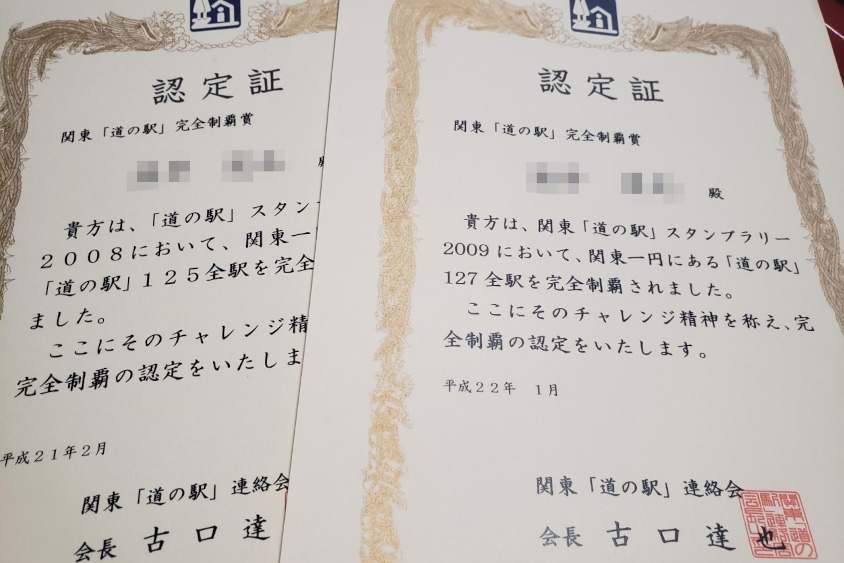 認定証
関東「道の駅」完全制覇賞
貴方は、「道の駅」スタン
２００８において、関東一
「道の駅」１２５全駅を完全
ました。
ここにそのチャレンジ精
完全制覇の認定をいたしま
平成２１年２月
関東「道の駅」連絡会
会長 古口達
認定証
関東「道の駅」完全制覇賞
殿
貴方は、関東「道の駅」スタンプラリー
2009において、関東一円にある「道の駅」
127全駅を完全制覇されました。
ここにそのチャレンジ精神を称え、完
全制覇の認定をいたします。
平成２２年 １月
関東「道の駅」連絡会
会長 古口達也